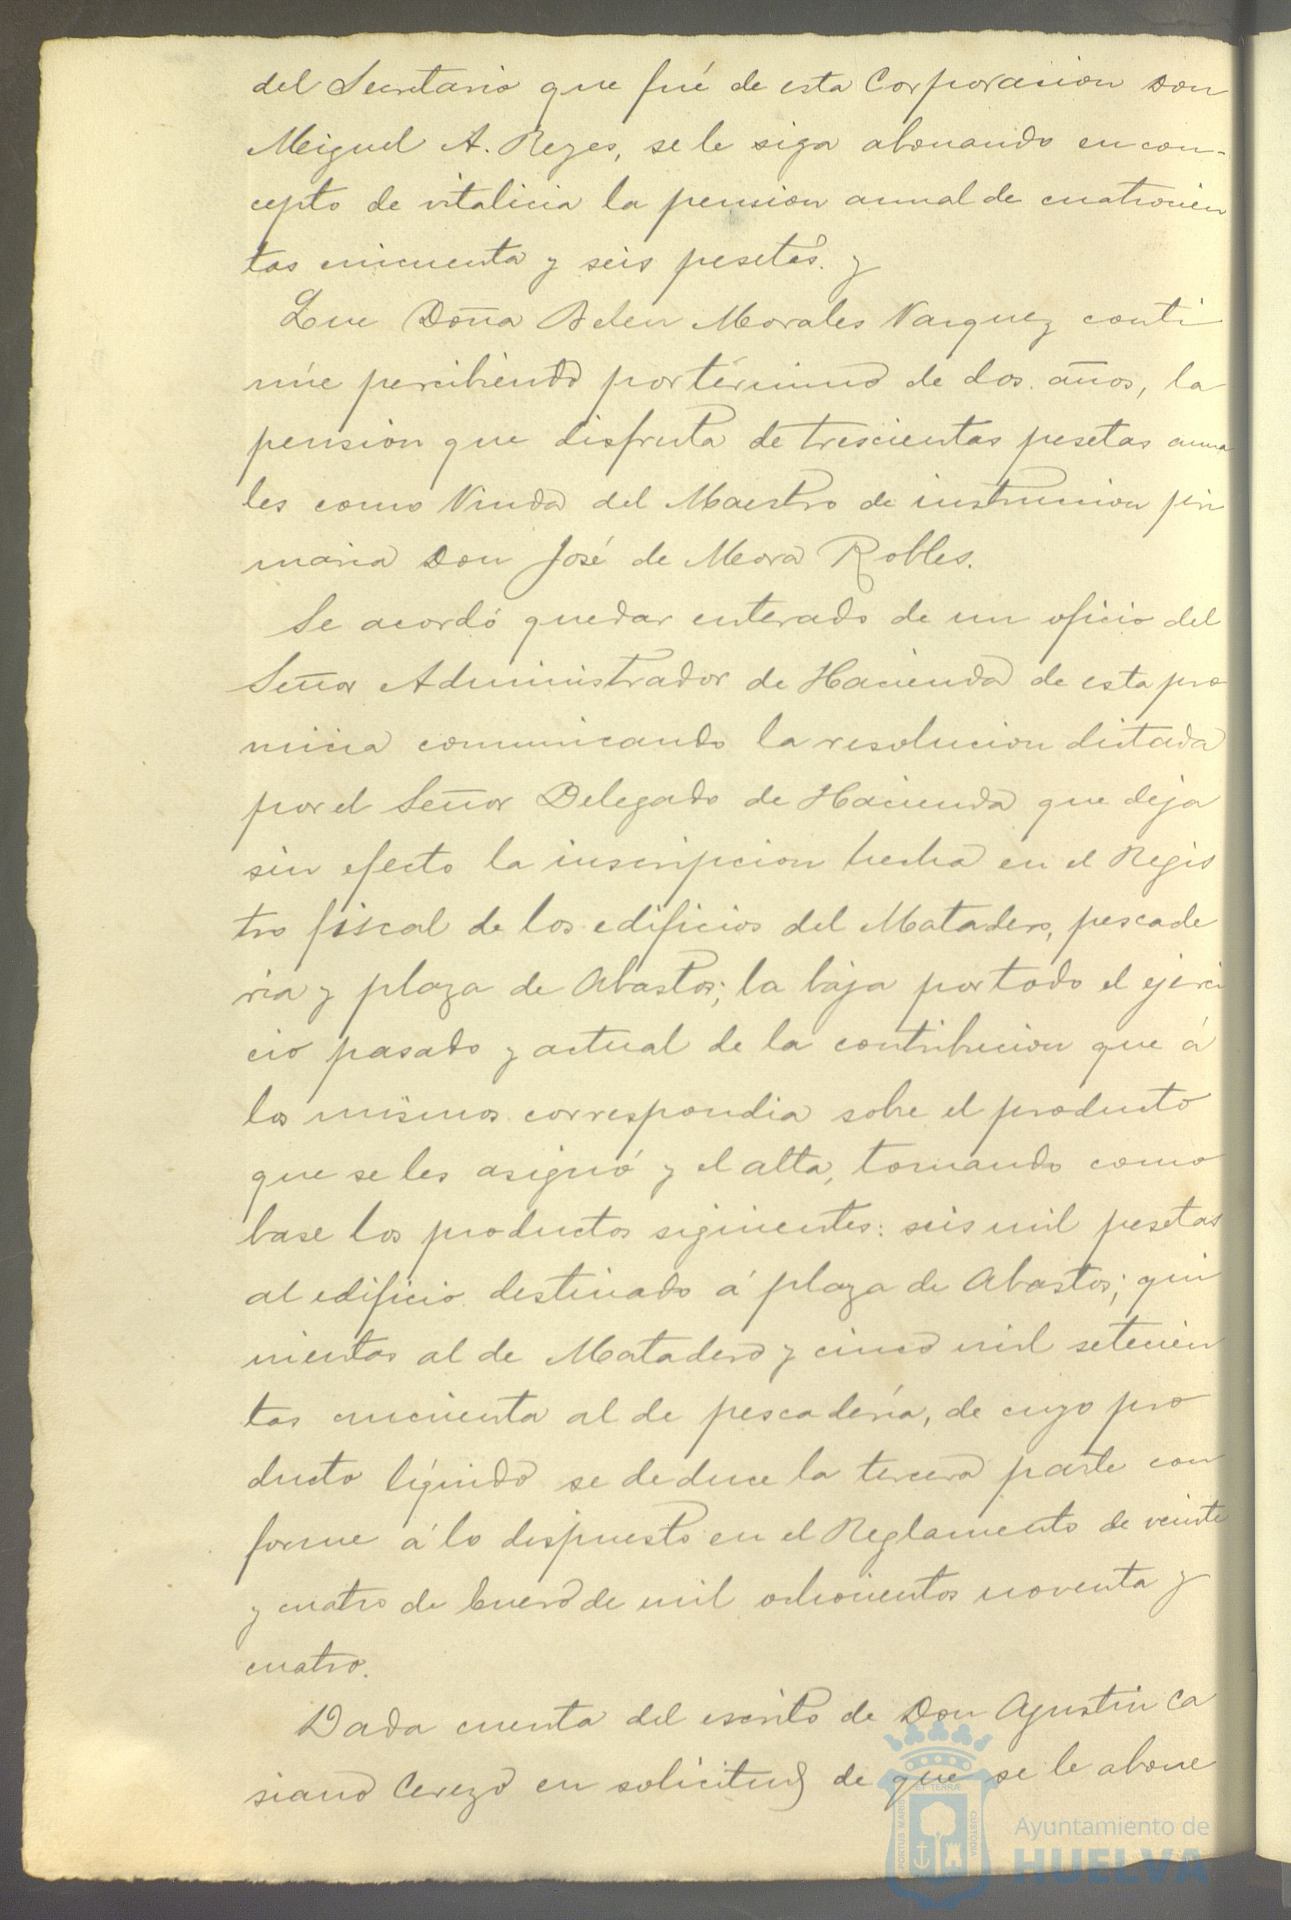 del Secretario que fué de esta Corporacion Don
Miguel A. Reyes, se le siga abonando en con-
cepto de vitalicia la pension anual de cuatrocien
tas cincuenta y seis pesetas. y
Que Doña Belen Morales Vazquez conti
núe percibiendo por término de dos años, la
pension que disfruta de trescientas pesetas anua
les como Viuda del Maestro de instruccion pri
maria Don José de Mora Robles.
Se acordó quedar enterado de un oficio del
Señor Administrador de Hacienda de esta pro
vincia comunicando la resolucion dictada
por el Señor Delegado de Hacienda que deja
sin efecto la inscripcion hecha en el Regis
tro fiscal de los edificios del Matadero, pescade
ria y plaza de Abastos; la baja por todo el ejerci
cio pasado y actual de la contribucion que á
los mismos correspondia sobre el producto
que se les asignó y el alta, tomando como
base los productos siguientes: seis mil pesetas
al edificio destinado á plaza de Abastos; qui
nientas al de Matadero y cinco mil setecien
tas cincuenta al de pescadería, de cuyo pro
ducto líquido se deduce la tercera parte con
forme á lo dispuesto en el Reglamento de veinte
y cuatro de Enero de mil ochocientos noventa y
cuatro.
Dada cuenta del escrito de Don Agustin Ca
siano Cerezo en solicitud de que se le abone
PORTUS MARIS
ET TERRAE
CUSTODIA
Ayuntamiento de
HUELVA